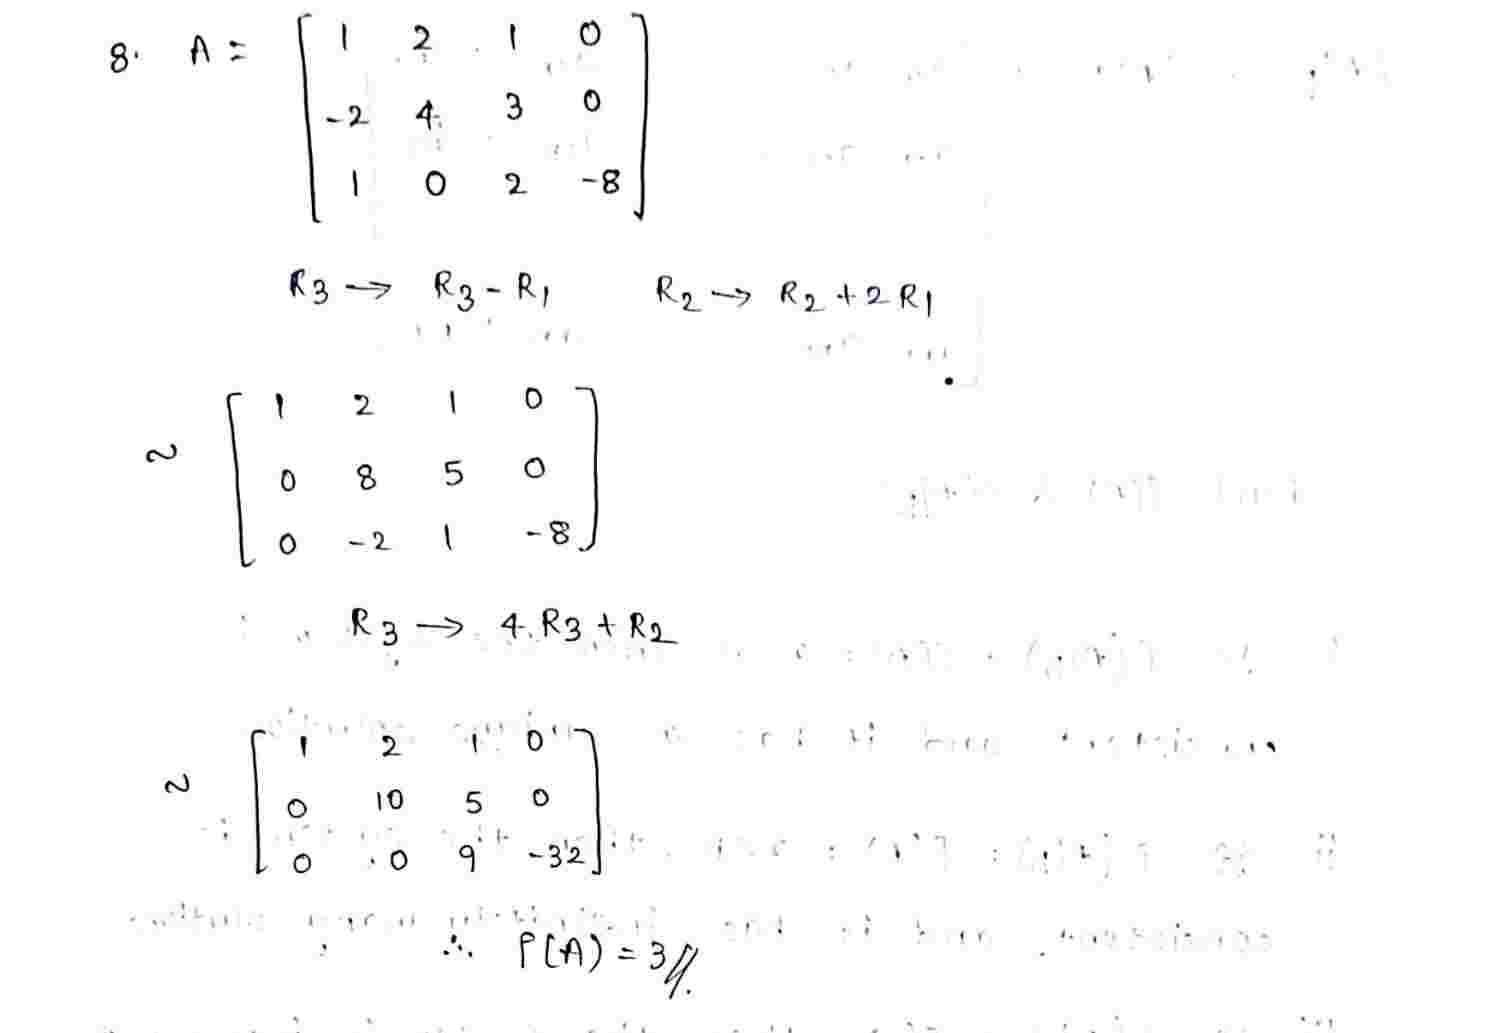 8. A = [ 1 2 1 0
-2 4 3 0
1 0 2 -8 ]
R3 → R3 - R1 R2 → R2 + 2R1
~ [ 1 2 1 0
0 8 5 0
0 -2 1 -8 ]
R3 → 4.R3 + R2
~ [ 1 2 1 0
0 10 5 0
0 0 9 -32 ]
∴ ρ(A) = 3//.